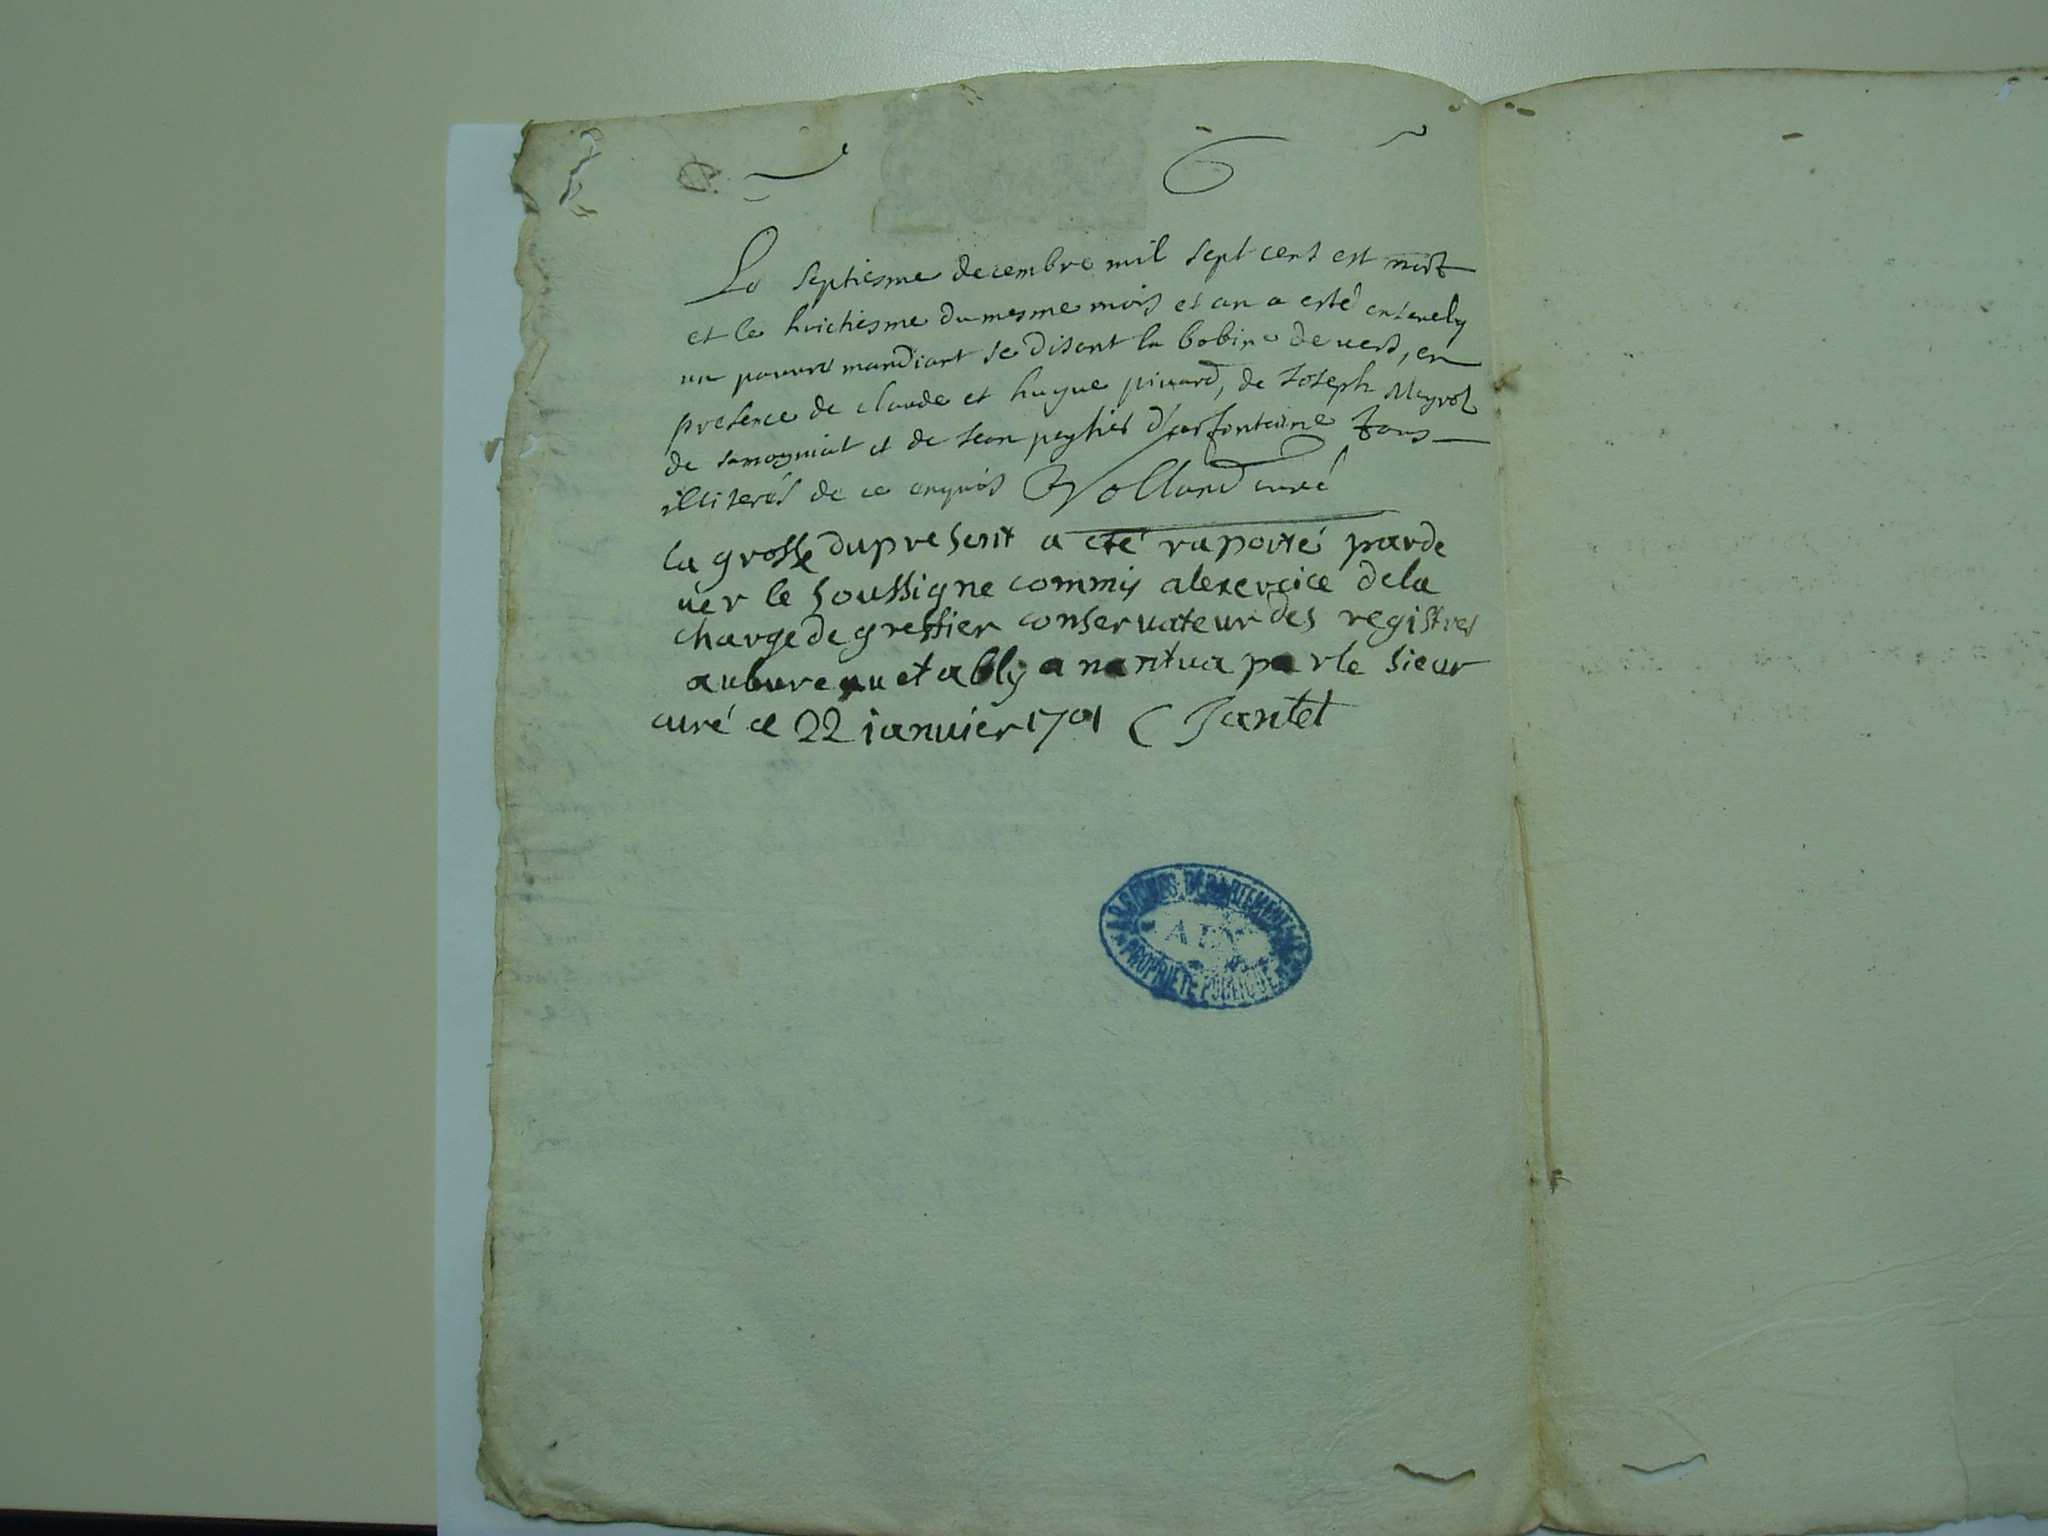 6
Le septiesme decembre mil sept cens est mort
et le huictiesme du mesme mois et an a esté ensevely
un pauvre mandiant se disent la bobine de vers, en
presence de claude et hugue pinard, de Joseph Meyrol
de samogniat et de Jean d'arfontaine Tous
illiterés de ce enquis Volland curé
la grosse du present a eté raporté parde
ver le soussigne commis alexercice dela
charge de greffier conservateur des registres
au bureau etably a nantua par le sieur
curé ce 22 ianvier 1701 C Jantet
ARCHIVES DÉPARTEMENTALES
AIN
PROPRIÉTÉ PUBLIQUE